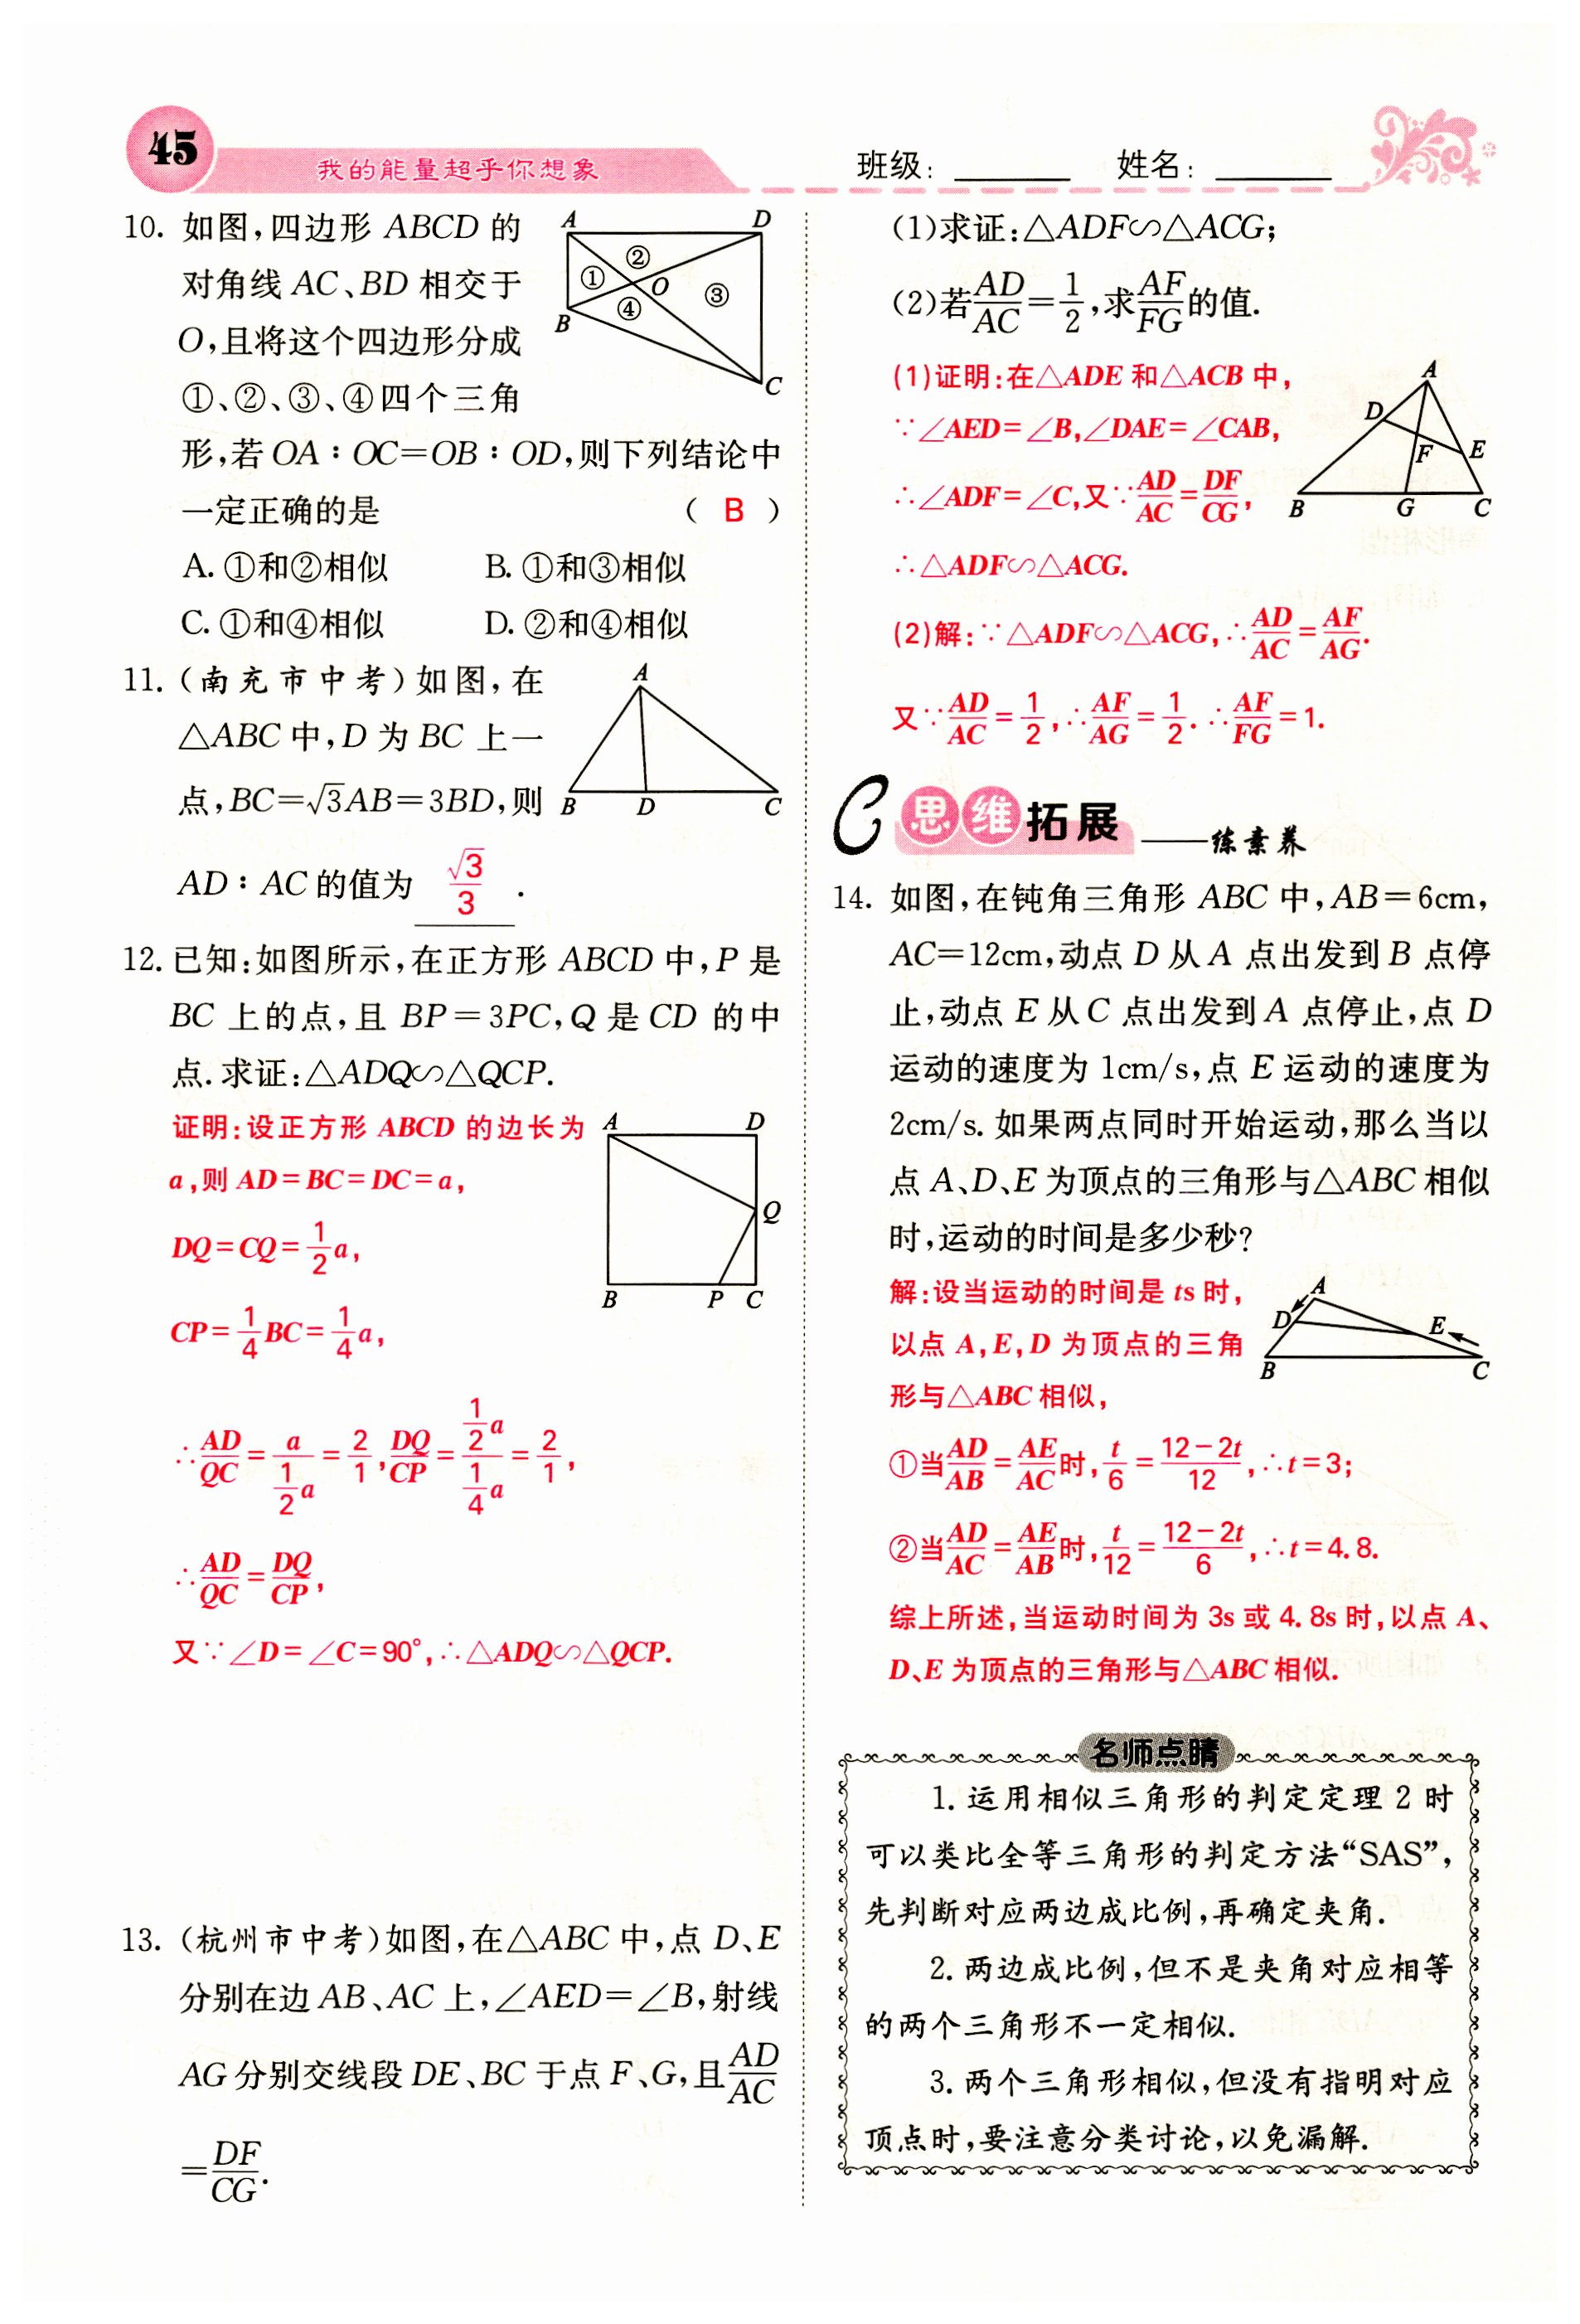 45
我的能量超乎你想象
班级: 姓名:
10. 如图,四边形 ABCD 的
对角线 AC、BD 相交于
O,且将这个四边形分成
①、②、③、④四个三角
形,若 OA∶OC=OB∶OD,则下列结论中
一定正确的是 ( B )
A. ①和②相似 B. ①和③相似
C. ①和④相似 D. ②和④相似
A D ① ② ③ ④ O B C
11. (南充市中考)如图,在
△ABC 中,D 为 BC 上一
点,BC=√3AB=3BD,则
AD∶AC 的值为 √3/3 .
A B D C
12. 已知:如图所示,在正方形 ABCD 中,P 是
BC 上的点,且 BP=3PC,Q 是 CD 的中
点. 求证:△ADQ∽△QCP.
证明:设正方形 ABCD 的边长为
a,则 AD=BC=DC=a,
DQ=CQ=1/2a,
CP=1/4BC=1/4a,
∴AD/QC=a/(1/2a)=2/1,DQ/CP=(1/2a)/(1/4a)=2/1,
∴AD/QC=DQ/CP,
又∵∠D=∠C=90°,∴△ADQ∽△QCP.
A D Q B P C
13. (杭州市中考)如图,在△ABC 中,点 D、E
分别在边 AB、AC 上,∠AED=∠B,射线
AG 分别交线段 DE、BC 于点 F、G,且AD/AC
=DF/CG.
(1)求证:△ADF∽△ACG;
(2)若AD/AC=1/2,求AF/FG的值.
(1)证明:在△ADE 和△ACB 中,
∵∠AED=∠B,∠DAE=∠CAB,
∴∠ADF=∠C,又∵AD/AC=DF/CG,
∴△ADF∽△ACG.
(2)解:∵△ADF∽△ACG,∴AD/AC=AF/AG.
又∵AD/AC=1/2,∴AF/AG=1/2.∴AF/FG=1.
A D F E B G C
C 思维拓展 ——练素养
14. 如图,在钝角三角形 ABC 中,AB=6cm,
AC=12cm,动点 D 从 A 点出发到 B 点停
止,动点 E 从 C 点出发到 A 点停止,点 D
运动的速度为 1cm/s,点 E 运动的速度为
2cm/s. 如果两点同时开始运动,那么当以
点 A、D、E 为顶点的三角形与△ABC 相似
时,运动的时间是多少秒?
解:设当运动的时间是 ts 时,
以点 A,E,D 为顶点的三角
形与△ABC 相似,
①当AD/AB=AE/AC时,t/6=(12-2t)/12,∴t=3;
②当AD/AC=AE/AB时,t/12=(12-2t)/6,∴t=4.8.
综上所述,当运动时间为 3s 或 4.8s 时,以点 A、
D、E 为顶点的三角形与△ABC 相似.
A D E B C
名师点睛
1. 运用相似三角形的判定定理 2 时
可以类比全等三角形的判定方法“SAS”,
先判断对应两边成比例,再确定夹角.
2. 两边成比例,但不是夹角对应相等
的两个三角形不一定相似.
3. 两个三角形相似,但没有指明对应
顶点时,要注意分类讨论,以免漏解.